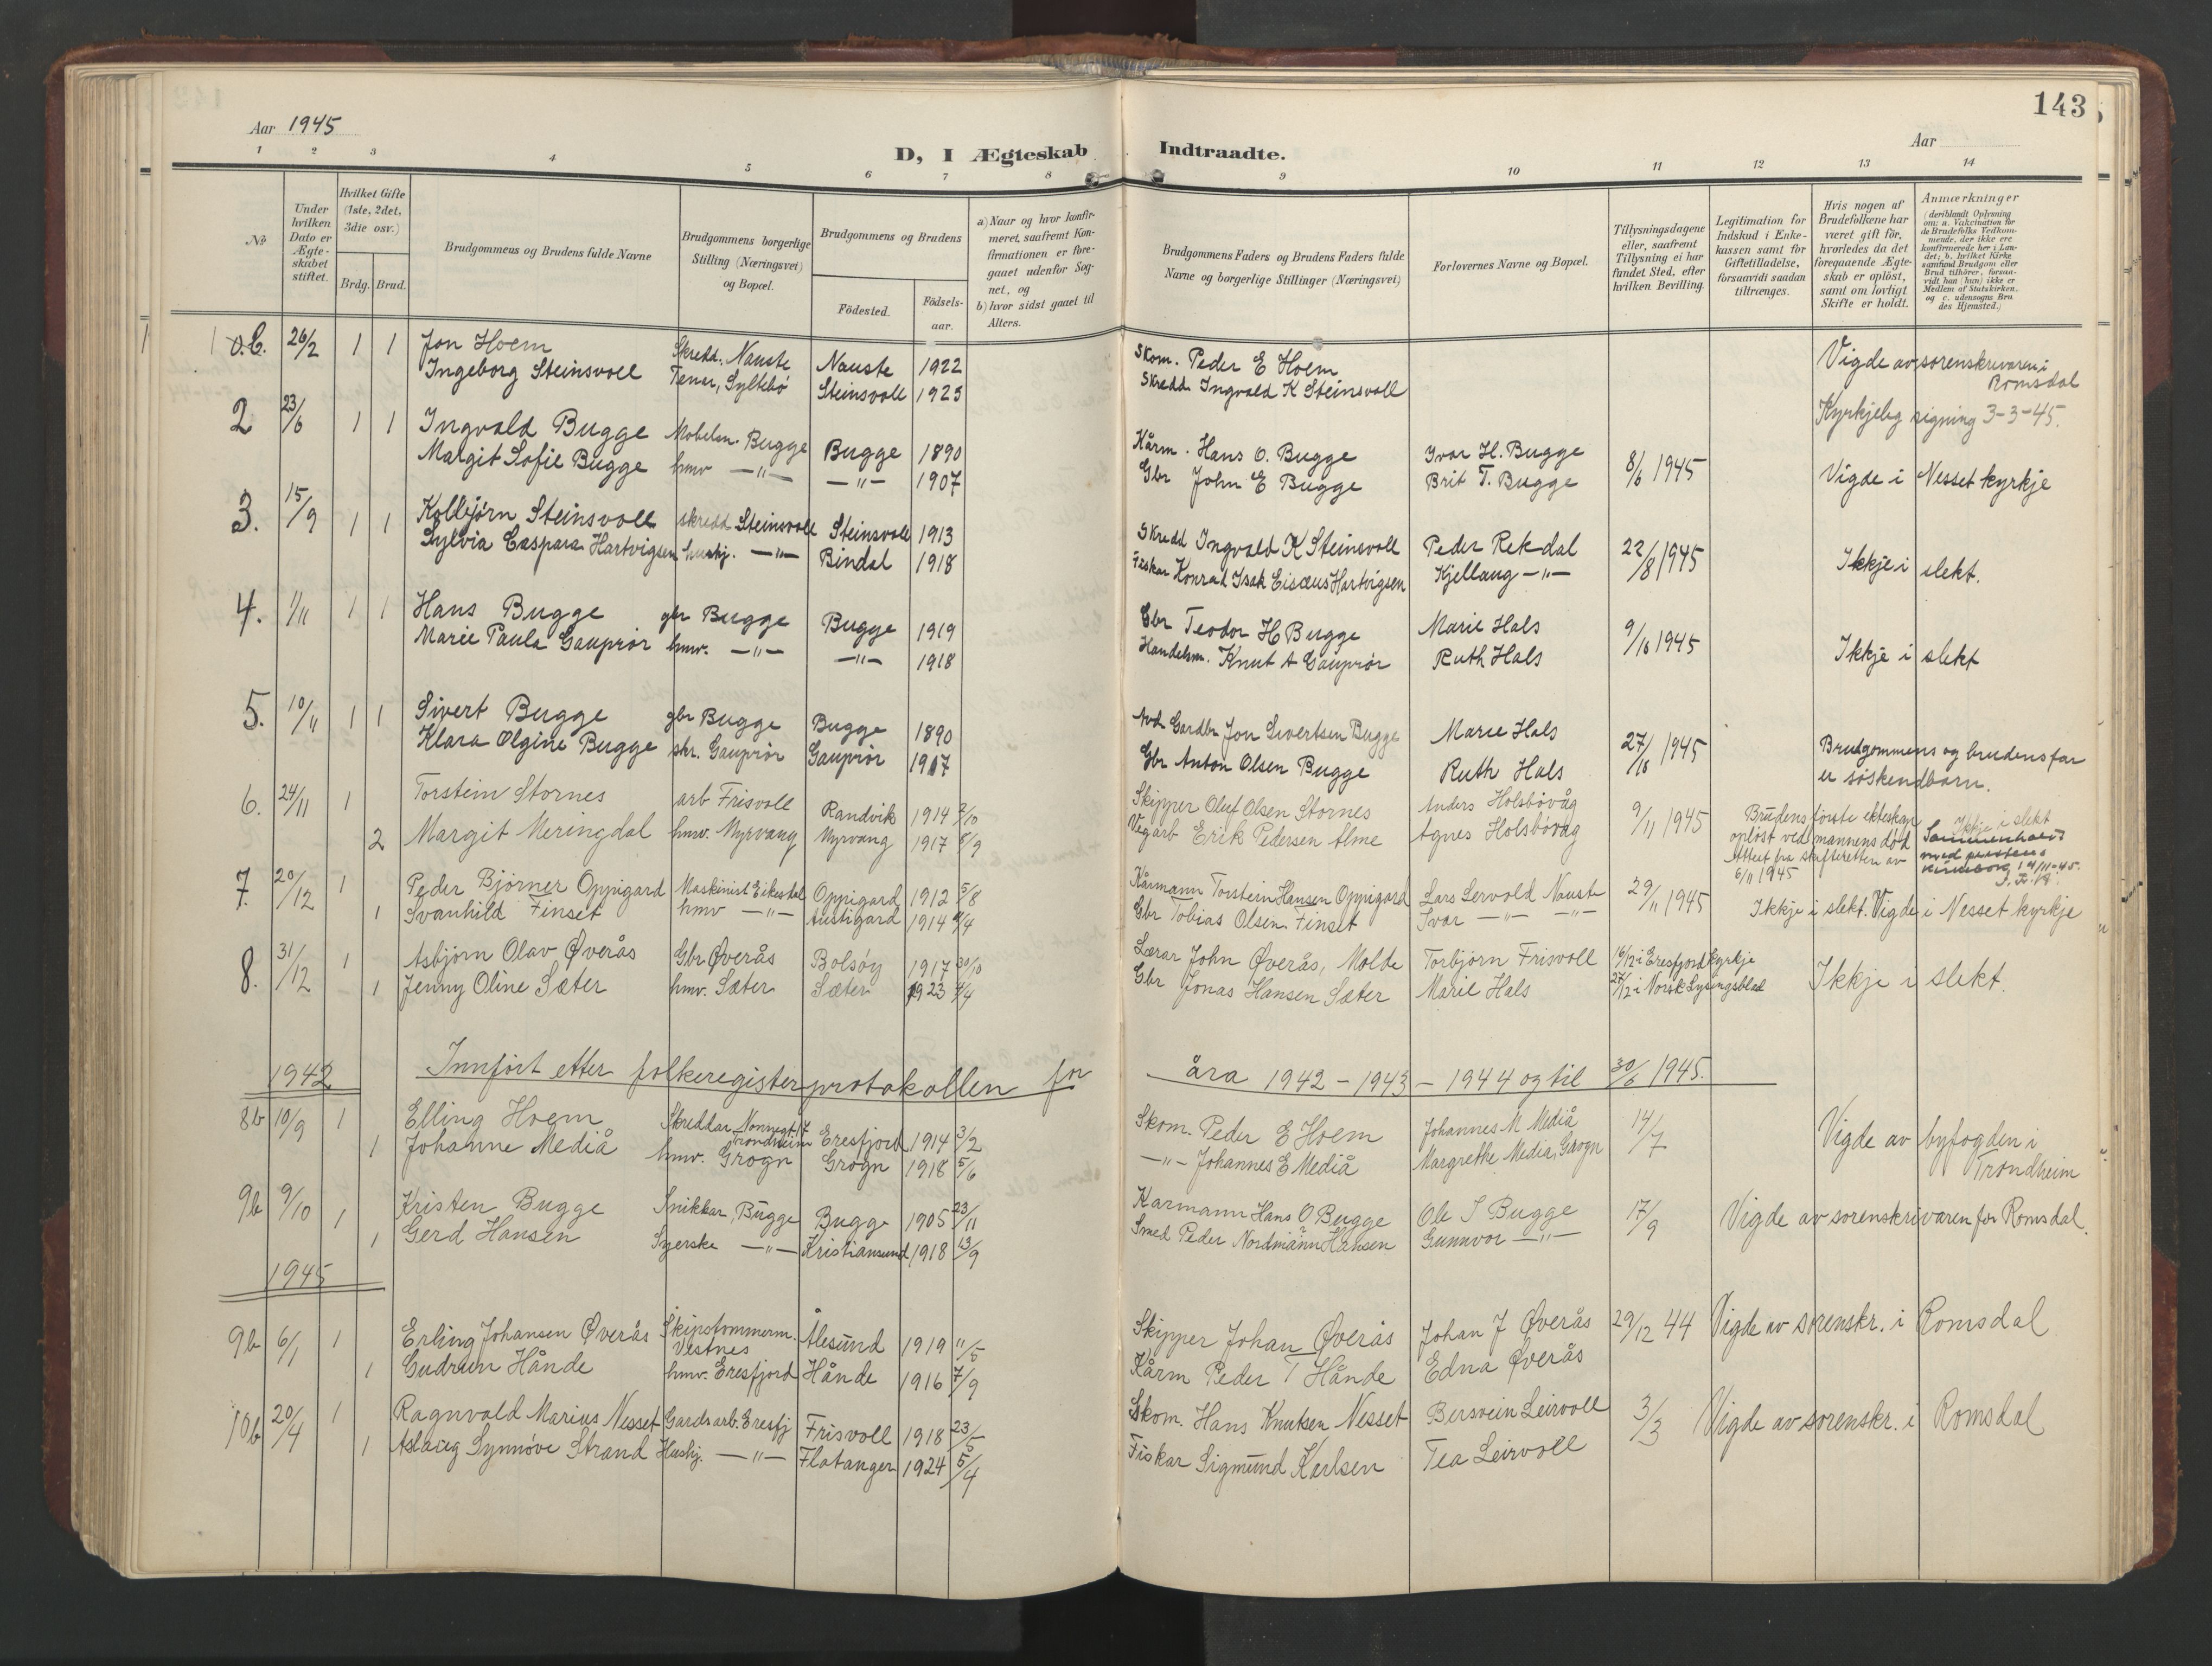 143
Aar 1945
Aar
D, I Ægteskab Indtraadte.
1 2 3 4 5 6 7 8 9 10 11 12 13 14
No
Under hvilken Dato er Ægteskabet stiftet.
Hvilket Gifte (1ste, 2det, 3die osv.)
Brdg. Brud.
Brudgommens og Brudens fulde Navne
Brudgommens borgerlige Stilling (Næringsvei) og Bopæl.
Brudgommens og Brudens
Födested.
Födselsaar.
a) Naar og hvor konfirmeret, saafremt Konfirmationen er foregaaet udenfor Sognet, og
b) hvor sidst gaaet til Alters.
Brudgommens Faders og Brudens Faders fulde Navne og borgerlige Stillinger (Næringsvei)
Forlovernes Navne og Bopæl.
Tillysningsdagene eller, saafremt Tillysning ei har fundet Sted, efter hvilken Bevilling.
Legitimation for Indskud i Enkekassen samt for Giftetilladelse, forsaavidt saadan tiltrænges.
Hvis nogen af Brudefolkene har været gift för, hvorledes da det foregaaende Ægteskab er oplöst, samt om lovligt Skifte er holdt.
Anmærkninger
(deriblandt Oplysning om: a. Vakcination for de Brudefolks Vedkommende, der ikke ere konfirmerede her i Landet; b. hvilket Kirkesamfund Brudgom eller Brud tilhörer, forsaavidt han (hun) ikke er Medlem af Statskirken, og c. udensogns Brudes Hjemsted.)
1 o.b. 26/2 1 1 Jon Hoem Skredd. Nauste Nauste 1922 Skom. Peder E Hoem Vigde av sorenskrivaren i
Ingeborg Steinsvoll Tener, Syltebø Steinsvoll 1923 Skredd Ingvald K Steinsvoll Romsdal
Kyrkjeleg signing 3-3-45.
2 23/6 1 1 Ingvald Bugge Mobelsn. Bugge Bugge 1890 Kårm. Hans O. Bugge Ivar H. Bugge 8/6 1945 Vigde i Nesset kyrkje
Margit Sofie Bugge hmv —"— —"— 1907 Gbr John E Bugge Brit T. Bugge
3. 15/9 1 1 Kolbjørn Steinsvoll skredd Steinsvoll Steinsvoll 1913 Skredd Ingvald K Steinsvoll Peder Rekdal 22/8 1945 Ikkje i slekt.
Sylvia Caspara Hartvigsen hushj. —"— Bindal 1918 Fiskar Konrad Isak Eisæus Hartvigsen Kjellaug —"—
4. 1/11 1 1 Hans Bugge gbr Bugge Bugge 1919 Gbr Teodor H Bugge Marie Hals 9/10 1945 Ikkje i slekt
Marie Paula Gauprør hmv. —"— —"— 1918 Handelsm. Knut A Gauprør Ruth Hals
5. 10/11 1 1 Sivert Bugge gbr Bugge Bugge 1890 Avd Gardbr Jon Sivertsen Bugge Marie Hals 27/10 1945 Brudgommens og brudens far
Klara Olgine Bugge skr. Gauprør Gauprør 1917 Gbr Anton Olsen Bugge Ruth Hals er søskendbarn.
6. 24/11 1 Torstein Stornes arb Frisvoll Randvik 1914 2/10 Skipper Oluf Olsen Stornes Anders Holsbøvåg 9/11 1945 Brudens første ekteskap Ikkje i slekt
2 Margit Meringdal hmv. Myrvang Myrvang 1917 8/9 Vegarb Erik Pedersen Alme Agnes Holsbøvåg opløst ved mannens død
Attest fra skifteretten av
6/11 1945
Sammenholdt
med prestens
14/11-45.
7. 20/12 1 Peder Bjørner Oppigard Maskinist Eikesdal Oppigard 1912 5/8 Kårmann Torstein Hansen Oppigard Lars Lervold Nauste 29/11 1945 Ikkje i slekt. Vigde i Nesset kyrkje
1 Svanhild Finset hmv —"— Austigard 1914 4/4 Gbr Tobias Olsen Finset Ivar —"— —"—
8. 31/12 1 Asbjørn Olav Øverås Gbr Øverås Bolsøy 1917 30/10 Lærar John Øverås, Molde Torbjørn Frisvoll 16/12 i Eresfjord kyrkje Ikkje i slekt.
1 Jenny Oline Sæter hmv. Sæter Sæter 1923 4/4 Gbr Jonas Hansen Sæter Marie Hals 27/12 i Norsk Lysingsblad
1942 Innført etter folkeregisterprotokollen for åra 1942 - 1943 - 1944 og til 30/6 1945.
8b 10/9 1 Elling Hoem Skreddar Nonnegt 17 Trondheim Eresfjord 1914 3/2 Skom. Peder E Hoem Johannes M Mediå 14/7 Vigde av byfogden i
1 Johanne Mediå hmv. Grøgn Grøgn 1918 5/6 —"— Johannes E Mediå Margrethe Mediå, Grøgn Trondheim
9b 9/10 1 Kristen Bugge Snikkar, Bugge Bugge 1905 23/11 Kårmann Hans O Bugge Ole I Bugge 17/9 Vigde av sorenskrivaren for Romsdal.
1 Gerd Hansen Syerske —"— Kristiansund 1918 13/9 Smed Peder Nordmann Hansen Gunnvor —"—
1945
9b 6/1 1 Erling Johansen Øverås Skipstømmerm. Vestnes Ålesund 1919 11/5 Skipper Johan Øverås Johan J Øverås 29/12 44 Vigde av sorenskr. i Romsdal
1 Gudrun Hånde hmv. Eresfjord Hånde 1916 7/9 Kårm Peder T Hånde Edna Øverås
10b 20/4 1 Ragnvald Marius Nesset Gardsarb. Eresfj Frisvoll 1918 23/5 Skom. Hans Knutsen Nesset Bersvein Leirvoll 3/3 Vigde av sorenskr. i Romsdal
1 Aslaug Synnøve Strand Hushj. —"— Flatanger 1924 5/4 Fiskar Sigmund Karlsen Tea Leirvoll